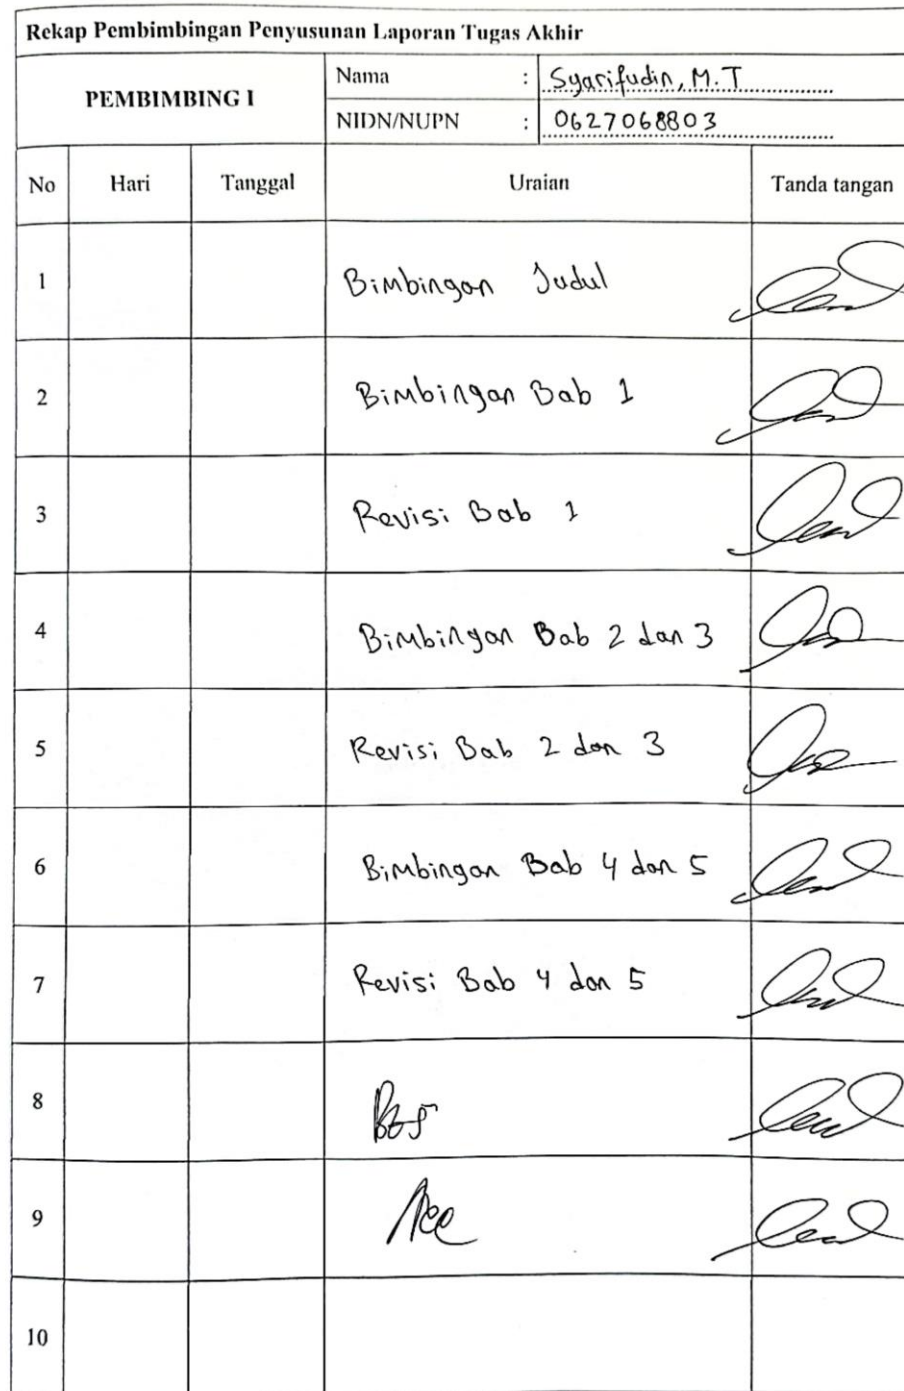 Rekap Pembimbingan Penyusunan Laporan Tugas Akhir
PEMBIMBING I
Nama : Syarifudin, M.T
NIDN/NUPN : 0627068803
No Hari Tanggal Uraian Tanda tangan
1 Bimbingan Judul
2 Bimbingan Bab 1
3 Revisi Bab 1
4 Bimbingan Bab 2 dan 3
5 Revisi Bab 2 dan 3
6 Bimbingan Bab 4 dan 5
7 Revisi Bab 4 dan 5
8
9 Acc
10